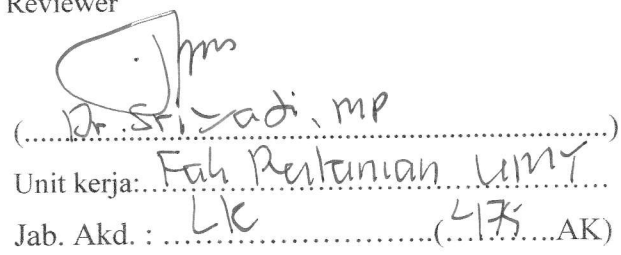 Reviewer
(Dr. Sriyadi, MP)
Unit kerja: Fak Pertanian UMY
Jab. Akd. : LK (475 AK)